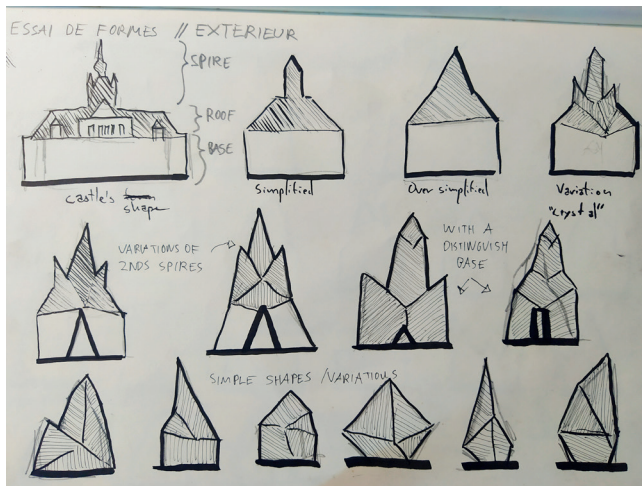 ESSAI DE FORMES // EXTERIEUR
SPIRE
ROOF
BASE
Castle's shape
Simplified
Over simplified
Variation
"Crystal"
VARIATIONS OF
2NDS SPIRES
WITH A
DISTINGUISH
BASE
SIMPLE SHAPES / VARIATIONS